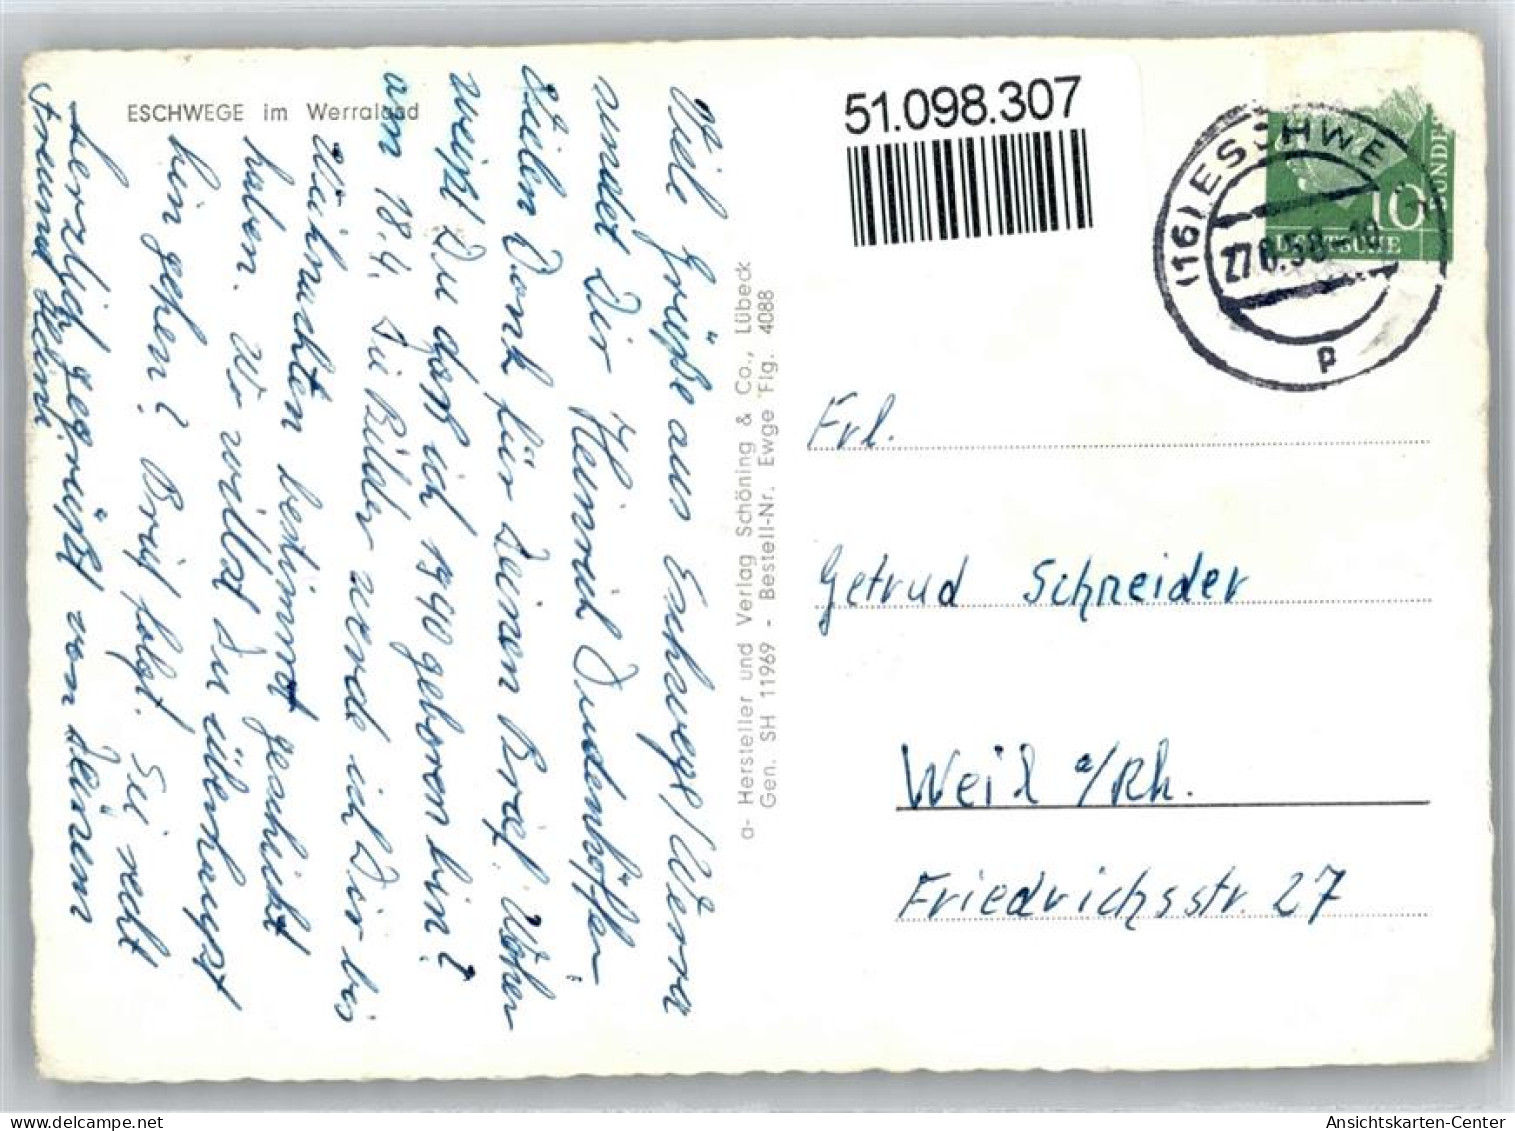 ESCHWEGE im Werraland
Viele Grüße aus Eschwege/Werra
sendet Dir Heinrich Dudenhöfer,
Vielen Dank für Deinen Brief. Woher
weißt Du daß ich 1940 geboren bin?
am 18.4. Die Bilder werde ich Dir bis
Weihnachten bestimmt geschickt
haben. Wo willst Du überhaupt
hin gehen? Brief folgt. Sei recht
herzlich gegrüßt von Deinem
Freund Heini.
a- Hersteller und Verlag Schöning & Co., Lübeck
Gen. SH 11969 - Bestell-Nr. Ewge Flg. 4088
51.098.307
(16) ESCHWE
27.6.58-10
P
10
BUNDES
DEUTSCHE
Frl.
Getrud Schneider
Weil a/Rh.
Friedrichsstr. 27
Ansichtskarten-Center